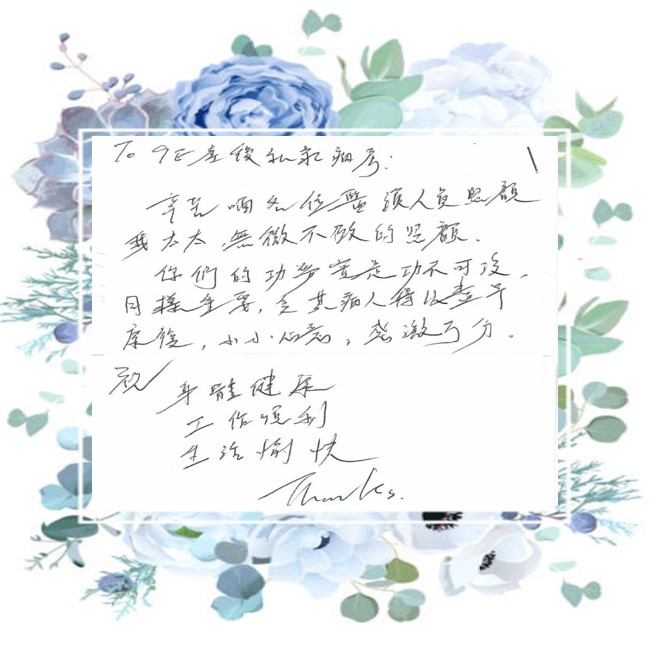 To 9E產後私家病房:
辛苦哂各位醫護人員照顧
我太太無微不致的照顧.
你們的功勞實是功不可沒,
同樣重要,令其病人得以盡早
康復,小小心意,感激万分.
祝
身體健康
工作順利
生活愉快
Thanks.